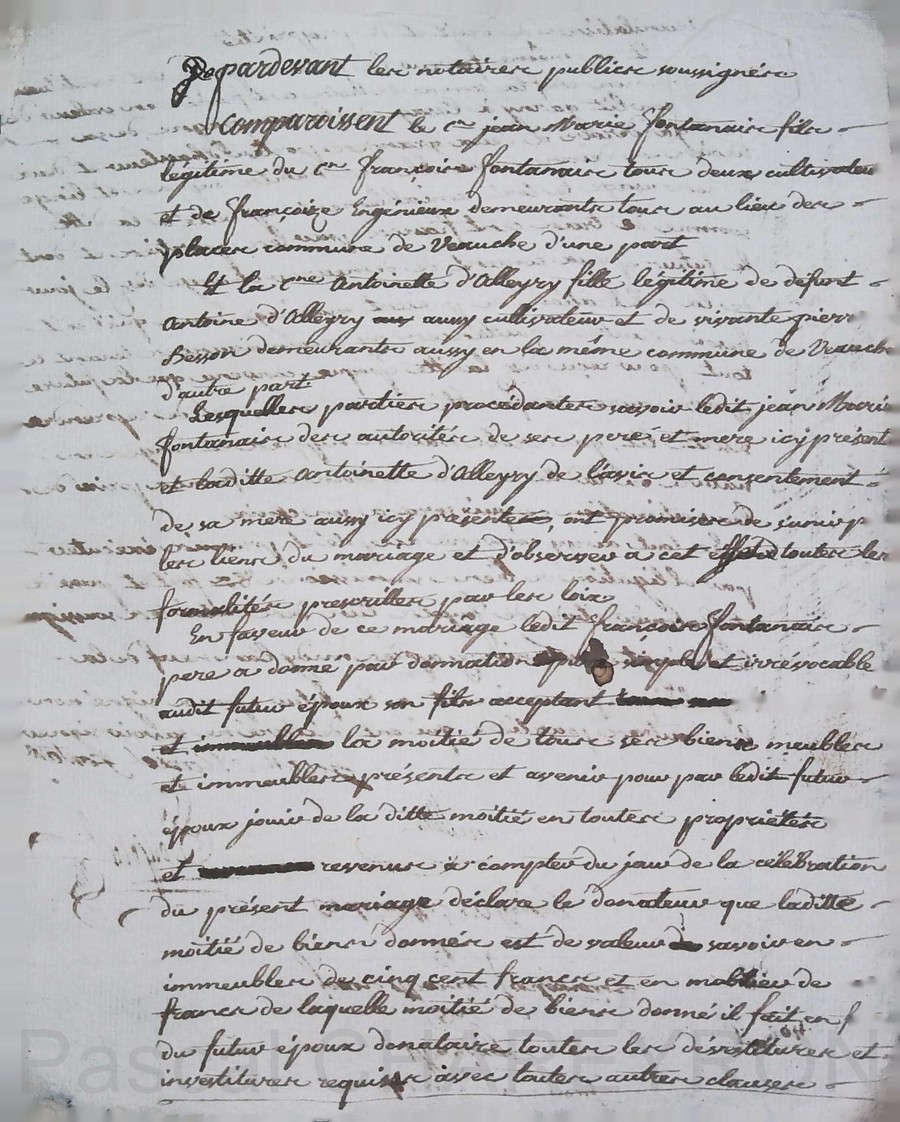 pardevant les notaires publics soussignés
Comparoissent le cen jean Marie fontanais fils
légitime du cen françois fontanais tous deux cultivateu
et de françoize Ingénieux demeurants tous au lieu des
places commune de Veauche d'une part
Et la cne Antoinette d'Alleyry fille légitime de défunt
Antoine d'Alleyry aussy cultivateur et de vivante pierr
Besson demeurants aussy en la même commune de Veauch
d'autre part
Lesquelles parties procédantes savoir ledit jean Marie
fontanais des autorités de ses pere et mere icy présent
et laditte Antoinette d'Alleyry de l'avis et consentement
de sa mere aussy icy présente, ont promis de s'unir p
les liens du mariage et d'observer a cet effet toutes les
formalités prescrittes par les loix
En faveur de ce mariage ledit françois fontanais
pere a donné par donnation simple et irrévocable
audit futur époux son fils acceptant
et immeubles la moitié de tous ses biens meubles
et immeubles présents et avenir pour par ledit futur
époux jouir de la ditte moitié en toutes propriétés
et revenus a compter du jour de la célébration
du présent mariage déclare le donateur que laditte
moitié de biens donnés est de valeur de savoir en
immeubles de cinq cent francs et en mobilier de
francs de laquelle moitié de biens donné il fait en f
du futur époux donataire toutes les dévestitures et
investitures requises avec toutes autres clauses
Pascal CHABERT FONT